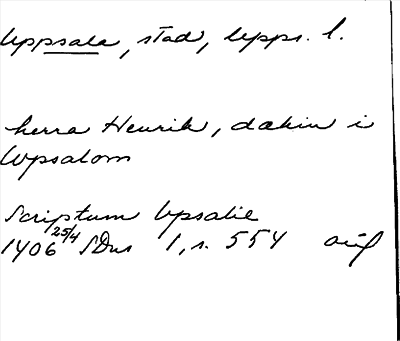 Uppsala, stad, Upps. l.
herra Henrik, däkin i
Vpsalom
Scriptum Vpsalie
1406 25/4 SDns 1, s. 554 orig